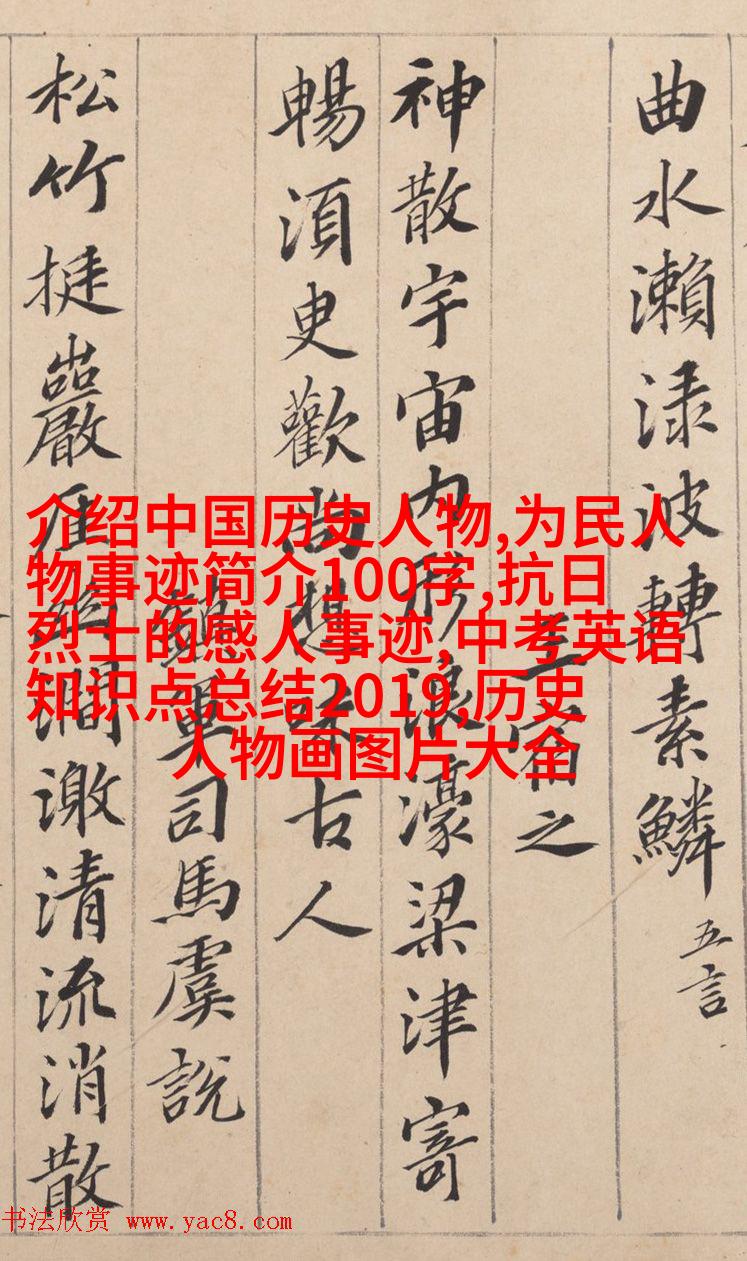 曲水瀨渌波轉素鱗 五言
之
神散宇宙内形浪濠梁津寄
暢湏臾歡尚想味古人
鎮軍司馬虞說
松竹挺巖崖幽澗激清流消散
介绍中国历史人物,为民人
物事迹简介100字,抗日
烈士的感人事迹,中考英语
知识点总结2019,历史
人物画图片大全
书法欣赏 www.yac8.com